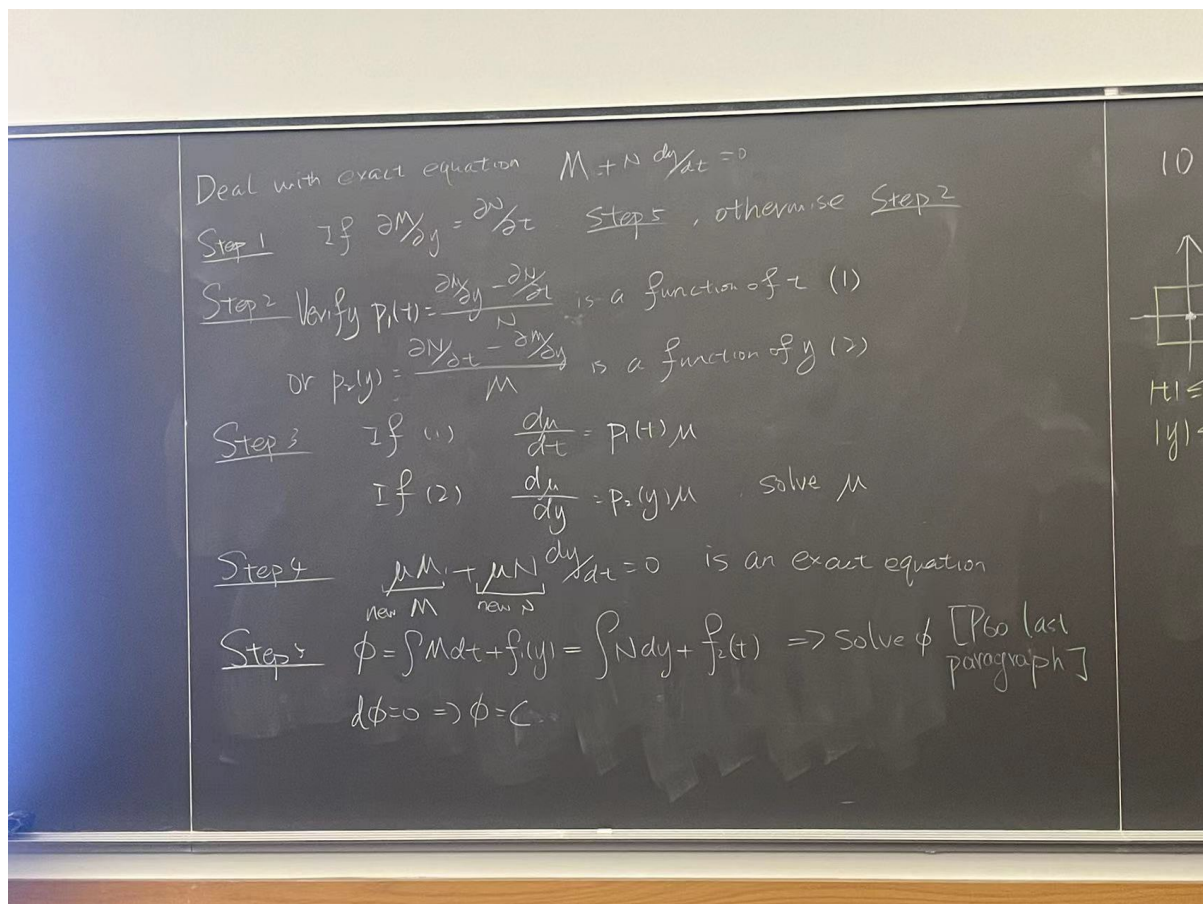 Deal with exact equation M + N dy/dt = 0
Step 1 If ∂M/∂y = ∂N/∂t Step 5, otherwise Step 2
Step 2 Verify p₁(t) = (∂M/∂y - ∂N/∂t)/N is a function of t (1)
or p₂(y) = (∂N/∂t - ∂M/∂y)/M is a function of y (2)
Step 3 If (1) dμ/dt = p₁(t)μ
If (2) dμ/dy = p₂(y)μ . solve μ
Step 4 μM + μN dy/dt = 0 is an exact equation
new M new N
Step 5 φ = ∫Mdt + f₁(y) = ∫Ndy + f₂(t) => Solve φ [P60 last paragraph]
dφ=0 => φ=C
10
|t| ≤
|y| ≤